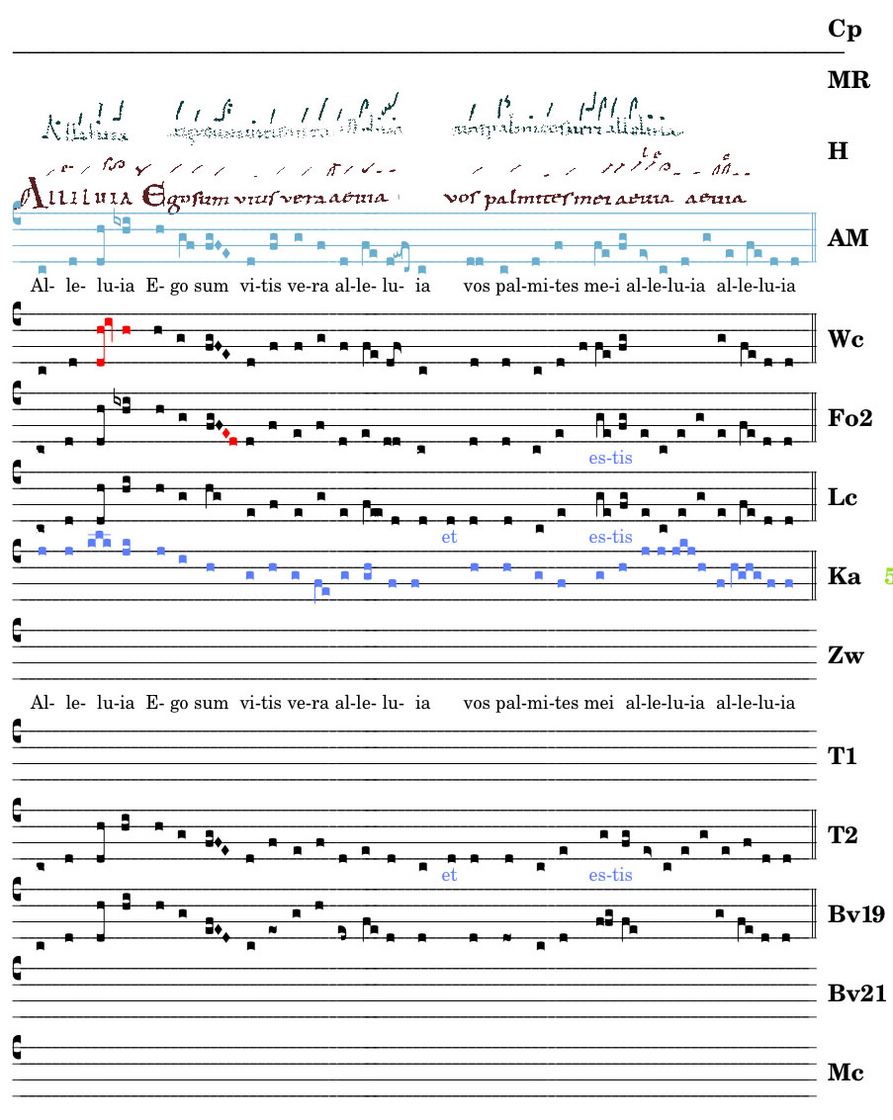 Cp
MR
H
Alleluia Ego sum vitis vera aevia vos palmites mei aevia aevia
AM
Al- le- lu-ia E- go sum vi-tis ve-ra al-le- lu- ia vos pal-mi-tes me-i al-le-lu-ia al-le-lu-ia
Wc
Fo2
es-tis
Lc
et es-tis
Ka 5
Zw
Al- le- lu-ia E- go sum vi-tis ve-ra al-le- lu- ia vos pal-mi-tes mei al-le-lu-ia al-le-lu-ia
T1
T2
et es-tis
Bv19
Bv21
Mc